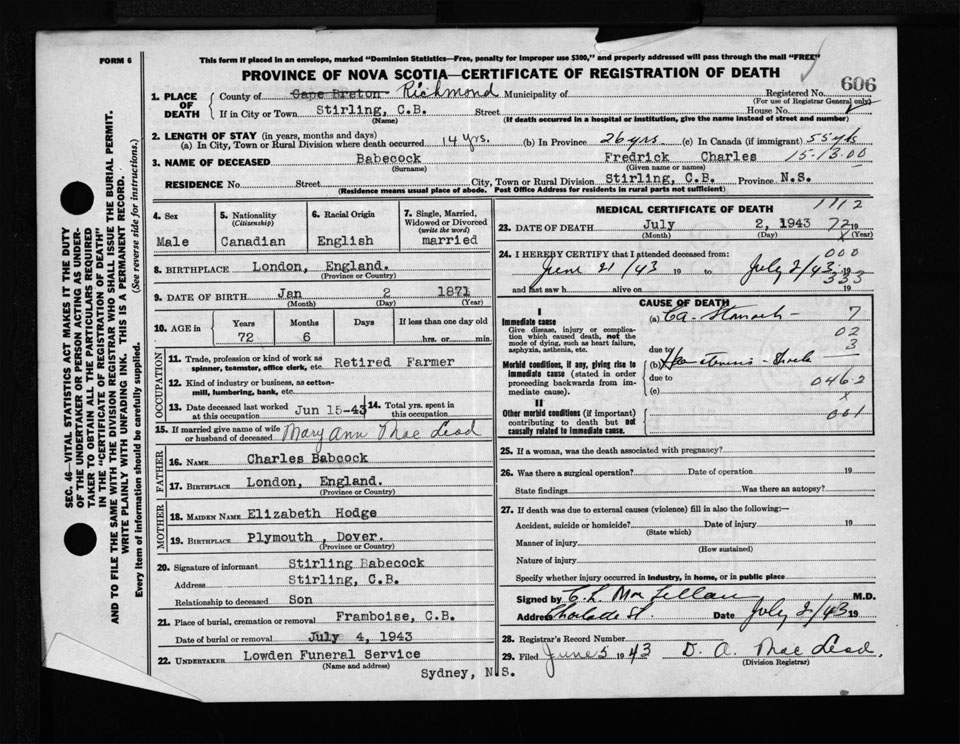 FORM 6
This form if placed in an envelope, marked "Dominion Statistics—Free, penalty for improper use $300," and properly addressed will pass through the mail "FREE"
PROVINCE OF NOVA SCOTIA—CERTIFICATE OF REGISTRATION OF DEATH
606
1. PLACE OF DEATH County of Cape Breton Richmond Municipality of Registered No.
(For use of Registrar General only)
If in City or Town Stirling, C.B. Street House No.
(Name) (If death occurred in a hospital or institution, give the name instead of street and number)
2. LENGTH OF STAY (in years, months and days)
(a) In City, Town or Rural Division where death occurred 14 yrs. (b) In Province 26 yrs (c) In Canada (if immigrant) 55 yrs
3. NAME OF DECEASED Babecock Fredrick Charles 15-13-00
(Surname) (Given name or names)
RESIDENCE No. Street City, Town or Rural Division Stirling, C.B. Province N.S.
(Residence means usual place of abode. Post Office Address for residents in rural parts not sufficient)
4. Sex
Male
5. Nationality
(Citizenship)
Canadian
6. Racial Origin
English
7. Single, Married, Widowed or Divorced
(write the word)
married
8. BIRTHPLACE London, England.
(Province or Country)
9. DATE OF BIRTH Jan 2 1871
(Month) (Day) (Year)
10. AGE in Years Months Days If less than one day old
72 6 hrs. or min.
OCCUPATION
11. Trade, profession or kind of work as spinner, teamster, office clerk, etc. Retired Farmer
12. Kind of industry or business, as cotton-mill, lumbering, bank, etc.
13. Date deceased last worked at this occupation Jun 15-43 14. Total yrs. spent in this occupation
15. If married give name of wife or husband of deceased Mary Ann MacLeod
FATHER
16. NAME Charles Babcock
17. BIRTHPLACE London, England.
(Province or Country)
MOTHER
18. MAIDEN NAME Elizabeth Hodge
19. BIRTHPLACE Plymouth, Dover.
(Province or Country)
20. Signature of informant Stirling Babecock
Address Stirling, C.B.
Relationship to deceased Son
21. Place of burial, cremation or removal Framboise, C.B.
Date of burial or removal July 4, 1943
22. UNDERTAKER Lowden Funeral Service
(Name and address)
Sydney, N.S.
MEDICAL CERTIFICATE OF DEATH 1712
23. DATE OF DEATH July 2, 1943 72 19
(Month) (Day) X (Year)
24. I HEREBY CERTIFY that I attended deceased from: 000
June 21/43 19 to July 2/43 19
333
and last saw h alive on 19
CAUSE OF DEATH
I
Immediate cause
Give disease, injury or complication which caused death, not the mode of dying, such as heart failure, asphyxia, asthenia, etc.
(a) Ca. Stomach 7
02
due to 3
Morbid conditions, if any, giving rise to immediate cause (stated in order proceeding backwards from immediate cause).
(b) Shock
due to 046.2
(c) X
II
Other morbid conditions (if important) contributing to death but not causally related to immediate cause.
001
25. If a woman, was the death associated with pregnancy?
26. Was there a surgical operation? Date of operation 19
State findings Was there an autopsy?
27. If death was due to external causes (violence) fill in also the following:—
Accident, suicide or homicide? Date of injury 19
(State which)
Manner of injury
(How sustained)
Nature of injury
Specify whether injury occurred in industry, in home, or in public place
Signed by M.D.
Address Charlotte St. Date July 2/43 19
28. Registrar's Record Number
29. Filed June 5 1943 D. A. MacLeod.
(Division Registrar)
SEC. 46—VITAL STATISTICS ACT MAKES IT THE DUTY
OF THE UNDERTAKER OR PERSON ACTING AS UNDER-
TAKER TO OBTAIN ALL THE PARTICULARS REQUIRED
IN THE "CERTIFICATE OF REGISTRATION OF DEATH"
AND TO FILE THE SAME WITH THE DIVISION REGISTRAR WHO SHALL ISSUE THE BURIAL PERMIT.
WRITE PLAINLY WITH UNFADING INK. THIS IS A PERMANENT RECORD.
Every item of information should be carefully supplied. (See reverse side for instructions.)